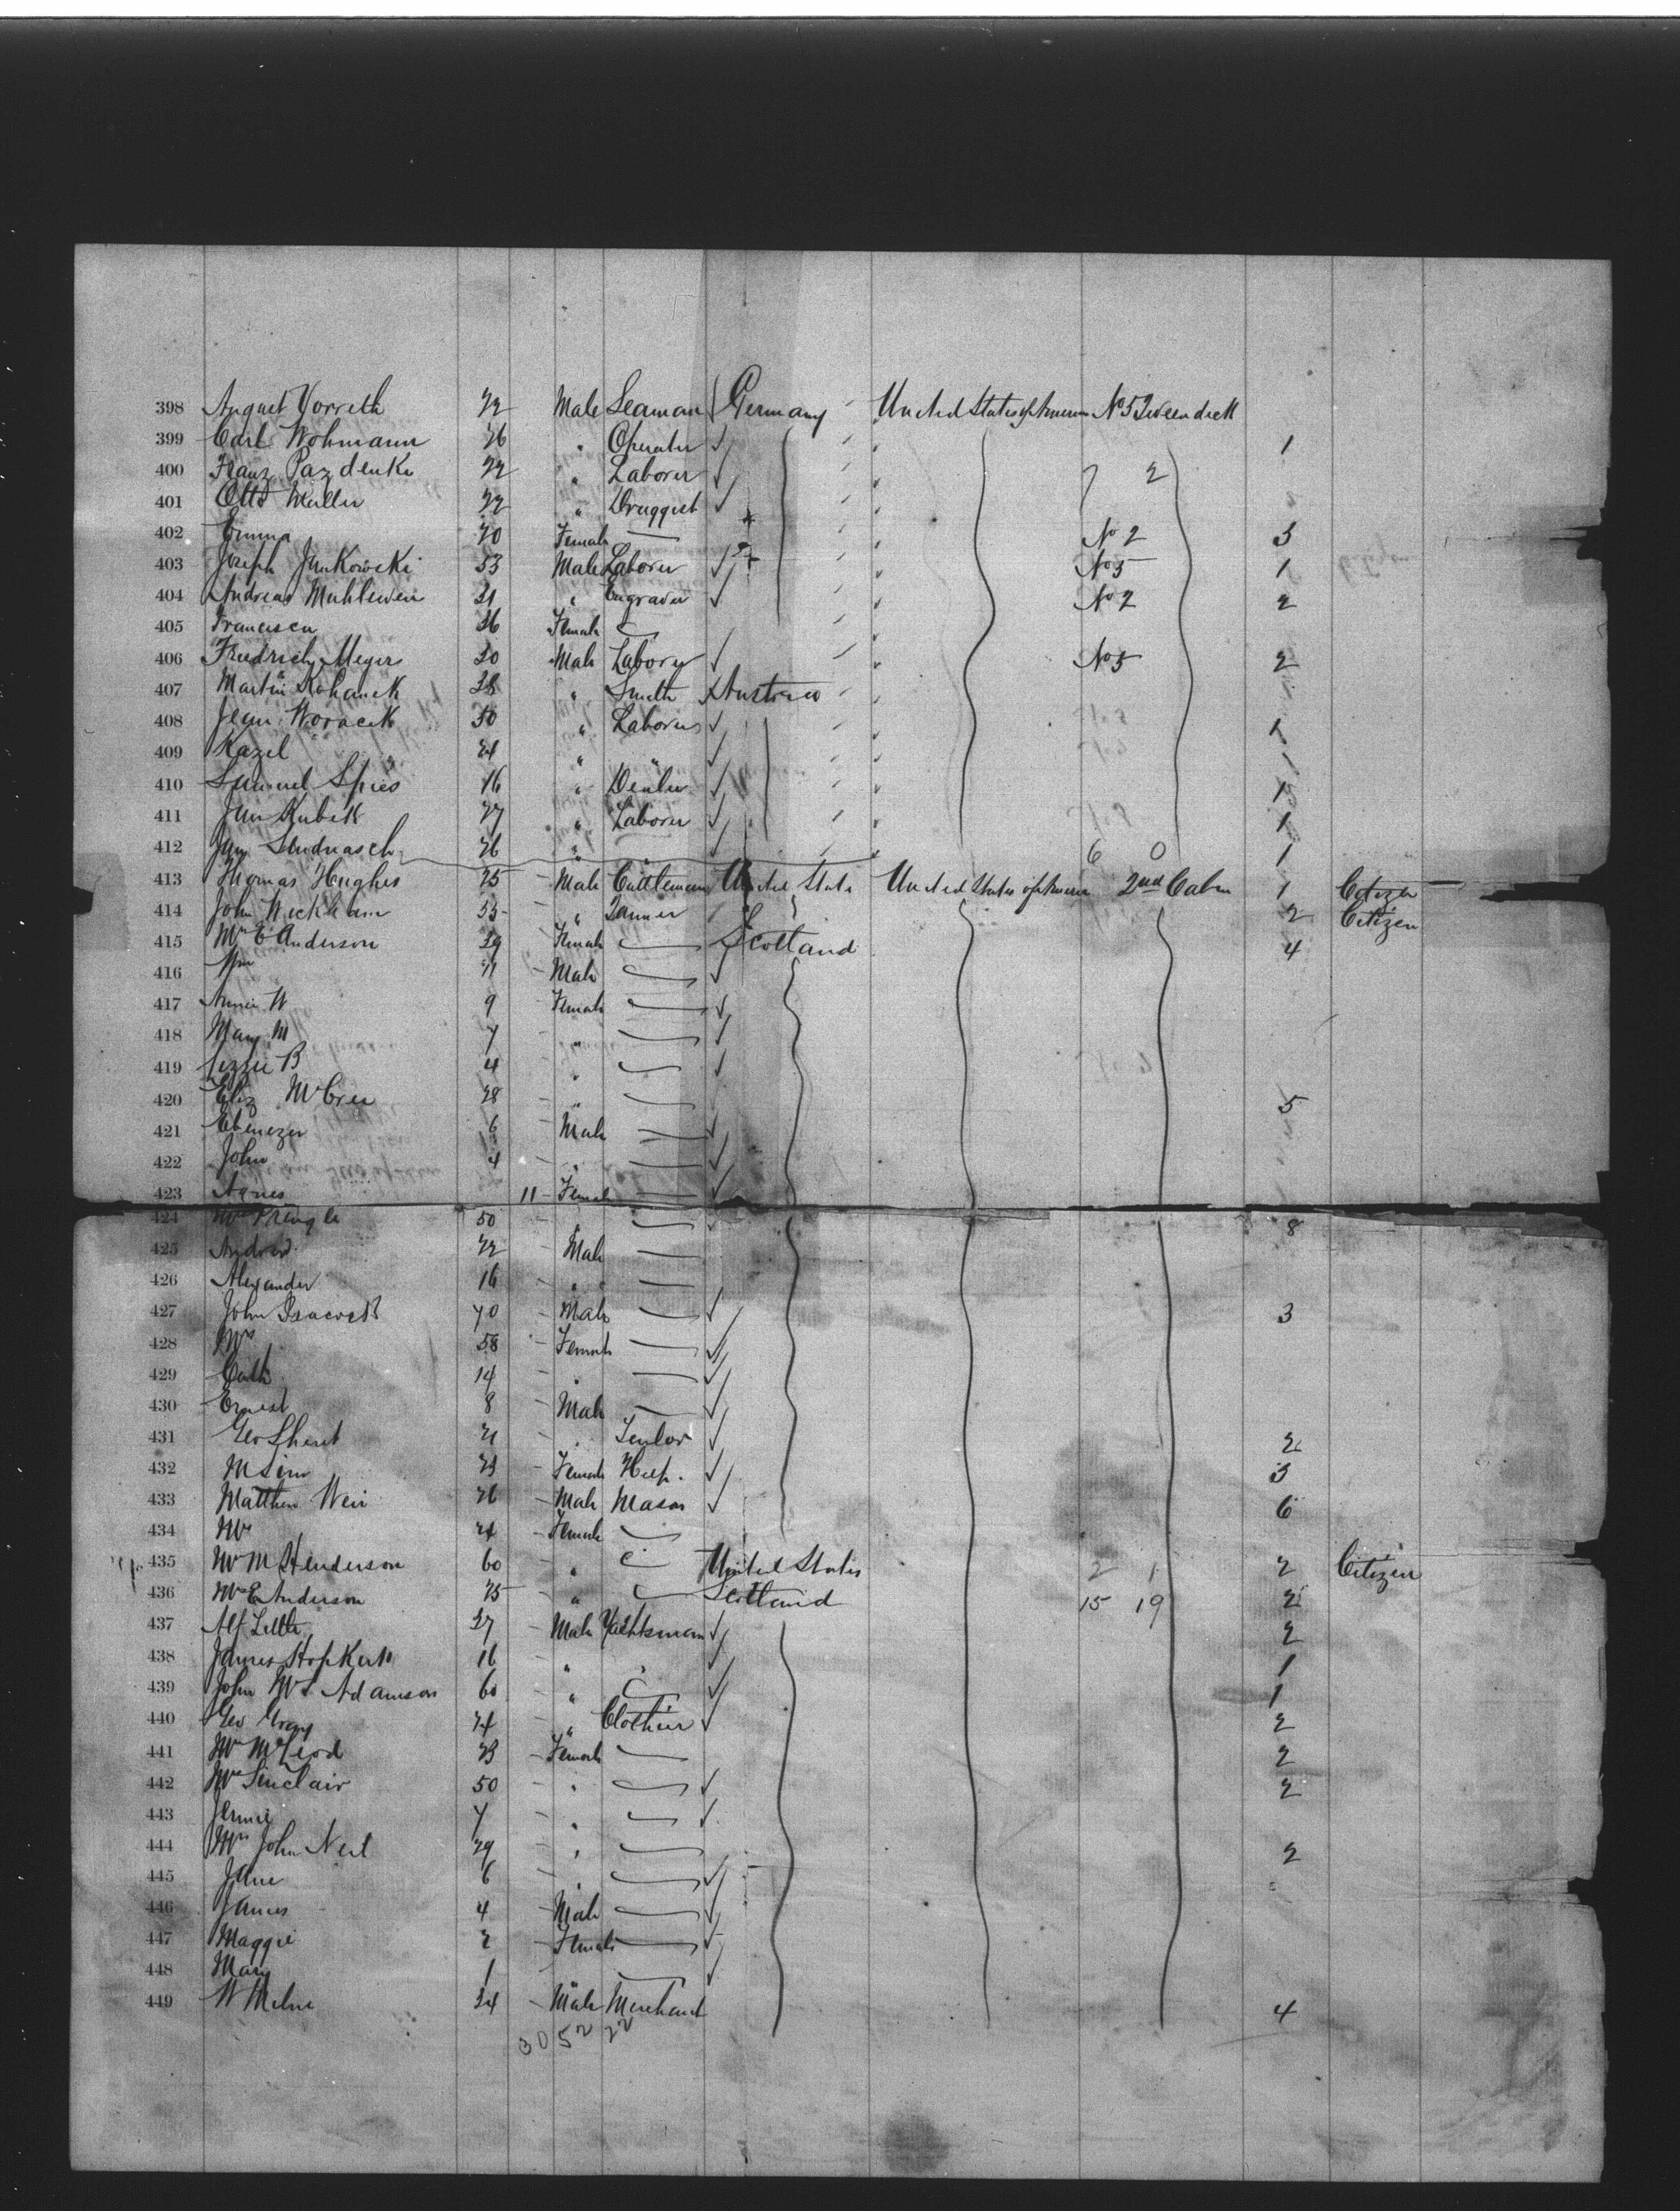 398 August 22 Male Seaman Germany United States of America No 5 Tween deck
399 Carl Wohmann 26 " Operator 1
400 Franz 22 " Laborer 2
401 Otto Muller 22 " Druggist
402 Emma 20 Female No 2 3
403 Joseph Jankowski 53 Male Laborer No 5 1
404 Andreas 31 " Engraver No 2 2
405 Francisca 26 Female
406 Friedrich Meyer 30 Male Laborer No 5 2
407 Martin 38 " Smith Austria
408 Jean Woracek 50 " Laborer 1
409 Kazel 24 " " 1
410 Samuel Spies 16 " Dealer 1
411 Jan Kubik 27 " Laborer 1
412 Jan 26 " " 6 0 1
413 Thomas Hughes 25 Male Cattleman United States United States of America 2nd Cabin 1 Citizen
414 John Wickham 35 " Tanner 2 Citizen
415 Mrs E Anderson 39 Female Scotland 4
416 Wm 11 Male
417 Annie W 9 Female
418 Mary M 7 "
419 Lizzie B 4 "
420 Eliz McCree 28 " 5
421 Ebenezer 6 Male
422 John 4 "
423 Agnes 11 Female
424 Mrs Pringle 50 " 8
425 Andrew 22 Male
426 Alexander 16 "
427 John 70 Male 3
428 Mrs 58 Female
429 Cath 14 "
430 Ernest 8 Male
431 Geo 21 " 2
432 M Sim 23 Female Help. 3
433 Matthew Weir 26 Male Mason 6
434 Mrs 24 Female
435 Mrs M Henderson 60 " United States 2 1 2 Citizen
436 Mrs E Anderson 25 " Scotland 15 19 2
437 Alf Little 37 Male Yachtsman 2
438 James 16 " " 1
439 John Adamson 60 " 1
440 Geo Gray 24 " Clothier 2
441 Mrs McLeod 23 Female 2
442 Mrs Sinclair 50 " 2
443 Jennie 7 "
444 Mrs John Neil 29 " 2
445 Jane 6 "
446 James 4 Male
447 Maggie 2 Female
448 Mary 1 "
449 W Milne 34 Male Merchant 4
30 52 22